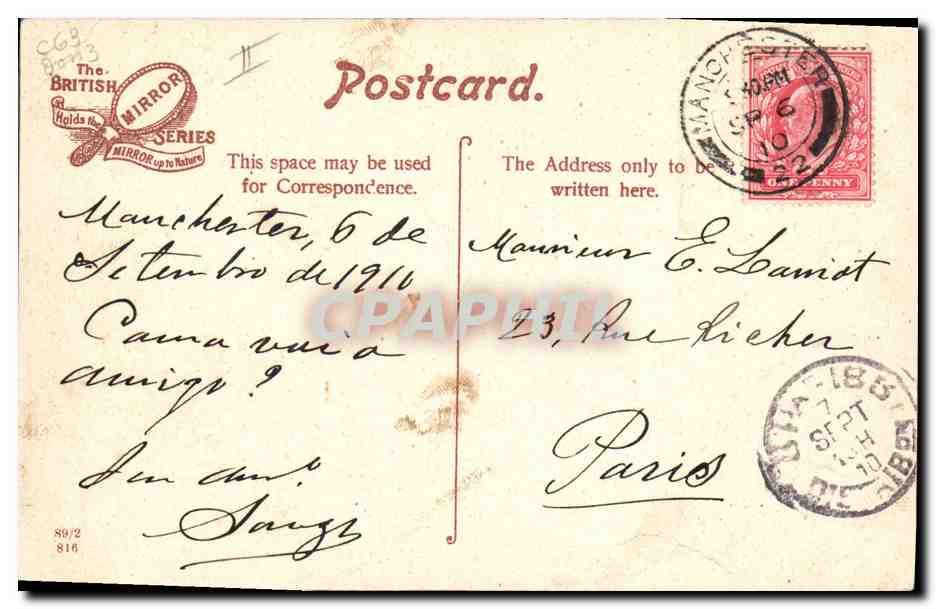 The
BRITISH
MIRROR
Holds the
SERIES
MIRROR up to Nature
Postcard.
MANCHESTER
SP 6
10
22
ONE PENNY
This space may be used
for Correspondence.
The Address only to be
written here.
Manchester, 6 de
Setembro de 1910
Como vai o
amigo?
Souza
Monsieur E.
23, Rue Richer
Paris
7
SEPT
10
89/2
816
CPAPHIL